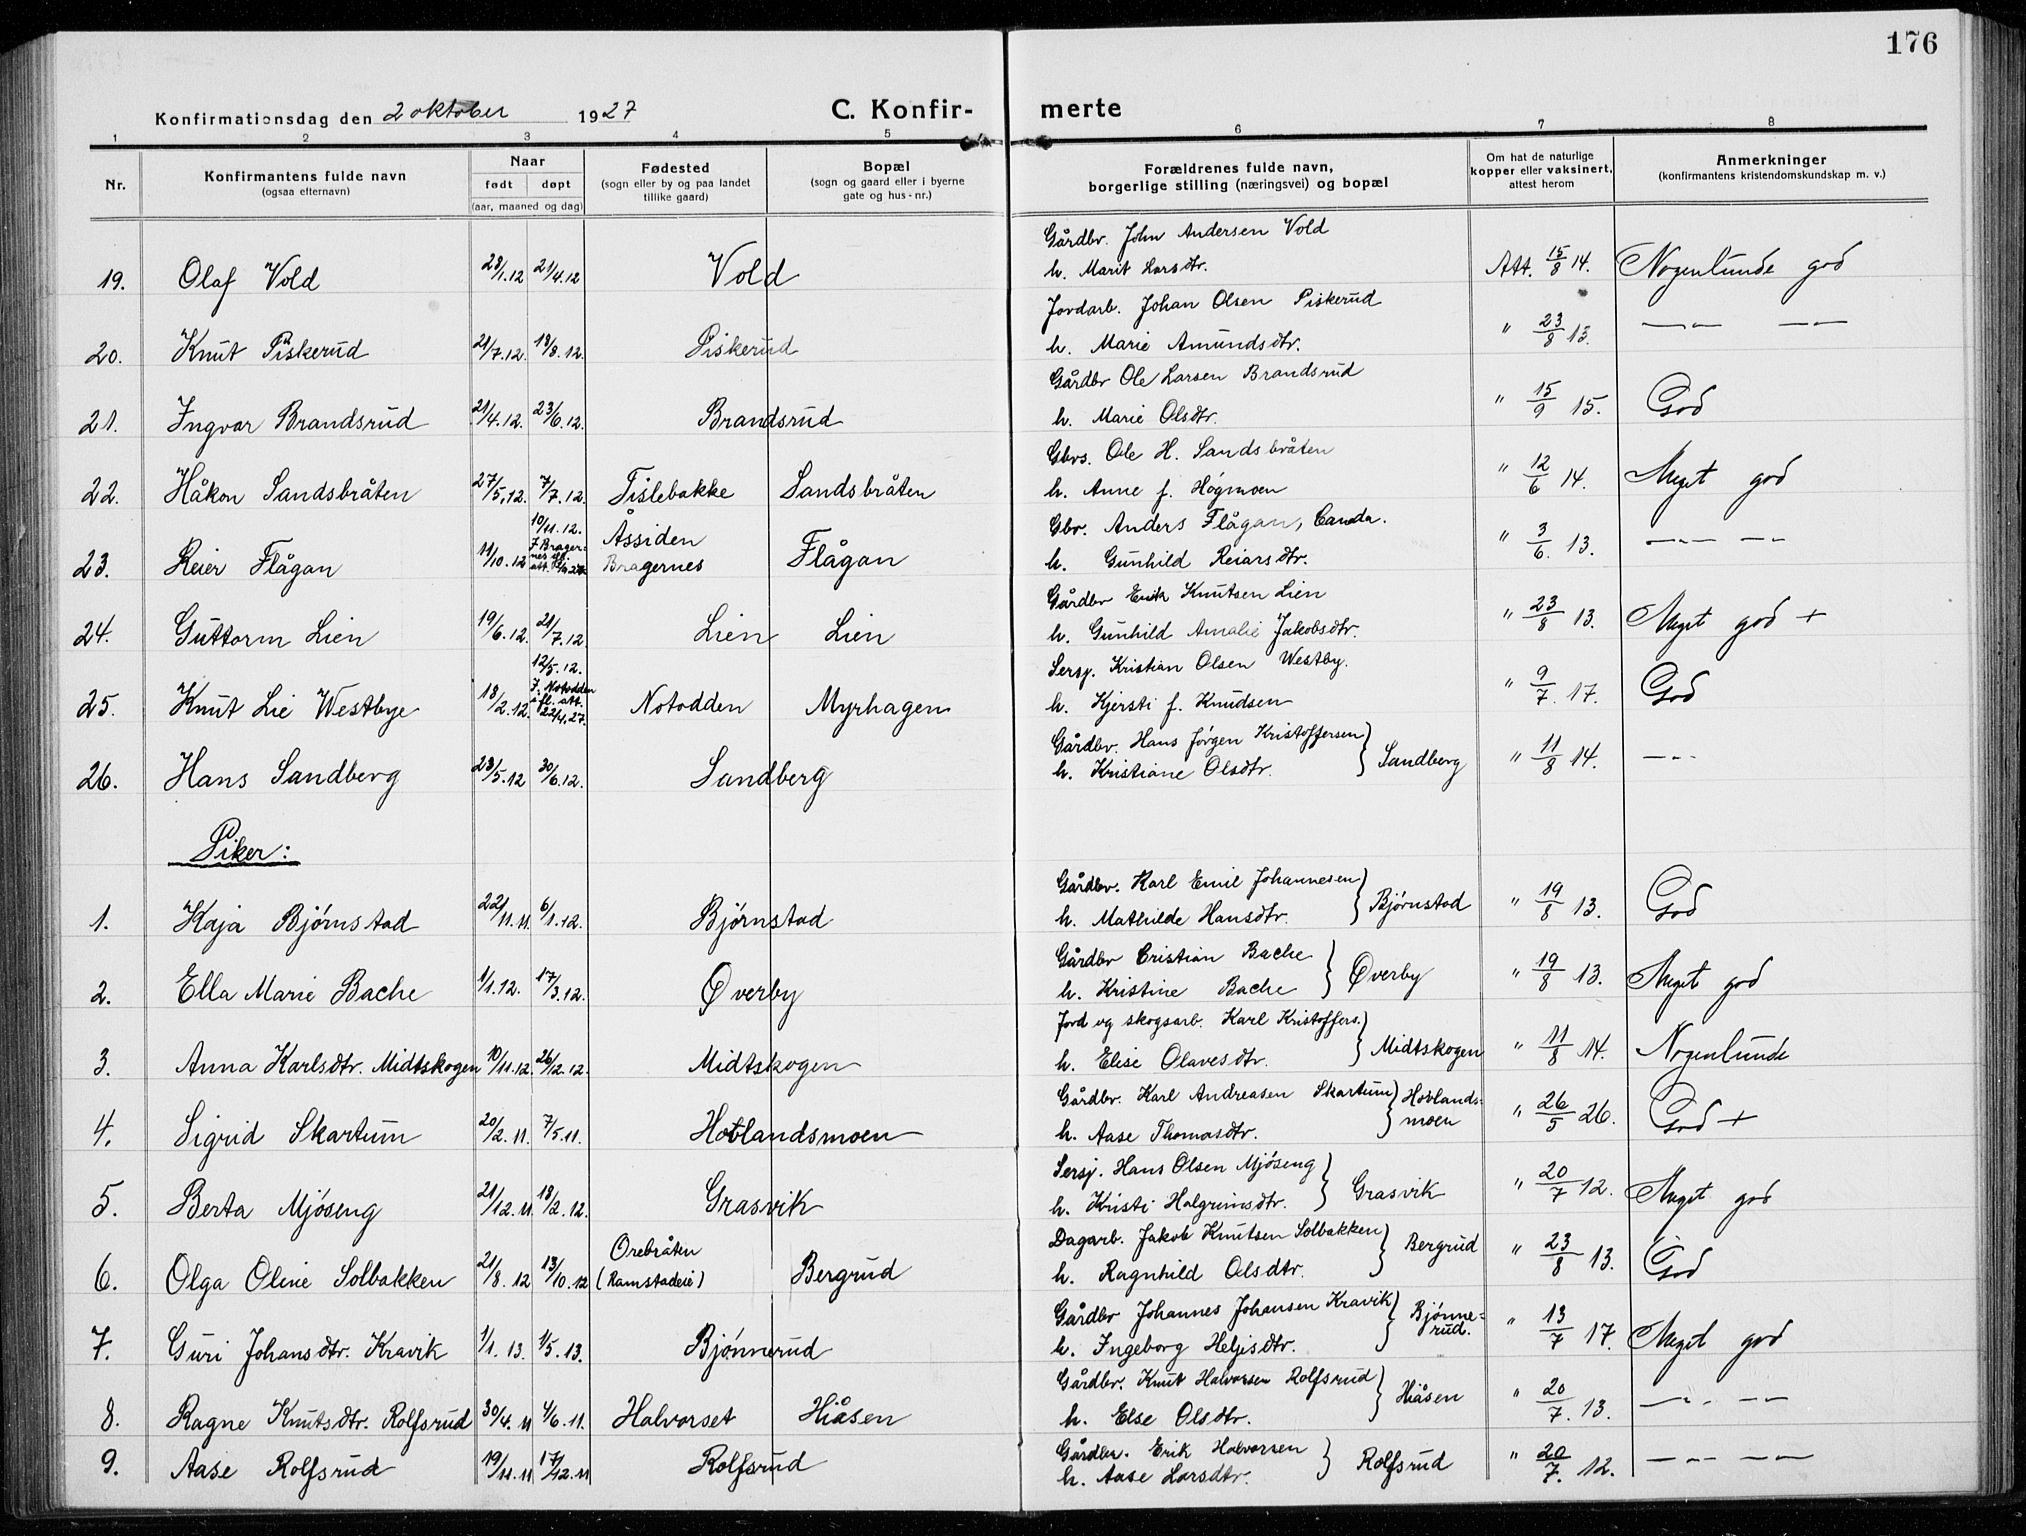 176
Konfirmationsdag den 2 oktober 1927
C. Konfir- merte
1 2 3 4 5 6 7 8
Nr.
Konfirmantens fulde navn
(ogsaa efternavn)
Naar
født døpt
(aar, maaned og dag)
Fødested
(sogn eller by og paa landet
tillike gaard)
Bopæl
(sogn og gaard eller i byerne
gate og hus-nr.)
Forældrenes fulde navn,
borgerlige stilling (næringsvei) og bopæl
Om hat de naturlige
kopper eller vaksinert,
attest herom
Anmerkninger
(konfirmantens kristendomskundskap m. v.)
Gårdbr. John Andersen Vold
19. Olaf Vold 28/1.12 21/4.12 Vold h. Marit Larsdtr. Att. 15/8 14. Nogenlunde god
Jordarb. Johan Olsen Piskerud
20. Knut Piskerud 21/7.12. 18/8.12. Piskerud h. Marie Amundsdtr. " 23/8 13. —"— —"—
Gårdbr Ole Larsen Brandsrud
21. Ingvar Brandsrud 21/4.12. 23/6.12. Brandsrud h. Marie Olsdtr. " 15/9 15. God
Gbrs. Ole H. Sandsbråten
22. Håkon Sandsbråten 27/5.12. 7/7.12. Tislebakke Sandsbråten h. Anne f. Høgmoen " 12/6 14. Meget god
10/11.12. Åssiden Gbr. Anders Flågan, Canada.
23. Reier Flågan 11/10.12 Bragernes Flågan h. Gunhild Reiarsdtr. " 3/6. 13. —"— —"—
Gårdbr Erik Knutsen Lien
24. Guttorm Lien 19/6.12. 21/7.12. Lien Lien h. Gunhild Amalie Jakobsdtr. " 23/8 13. Meget god +
12/5.12. Sersj. Kristian Olsen Westby.
I. Notodden
25. Knut Lie Westbye 18/2.12. att. 22/4.27. Notodden Myrhagen h. Kjersti f. Knudsen " 9/7. 17. God
Gårdbr. Hans Jörgen Kristoffersen
26. Hans Sandberg 23/5.12 30/6.12. Sandberg h. Kristiane Olsdtr. } Sandberg " 11/8 14. —"—
Piker:
Gårdbr. Karl Emil Johannesen
1. Kaja Bjørnstad 22/11.11. 6/1.12. Bjørnstad h. Mathilde Hansdtr. } Bjørnstad " 19/8 13. God
Gårdbr Cristian Bache
2. Ella Marie Bache 1/1.12. 17/3.12. Øverby h. Kristine Bache } Øverby " 19/8 13. Meget god
Jord og skogsarb. Karl Kristoffers.
3. Anna Karlsdtr. Midtskogen 10/11.12. 26/12.12. Midtskogen h. Elise Olavesdtr. } Midtskogen " 11/8 14. Nogenlunde
Gårdbr. Karl Andreasen Skartum } Hovlands-
4. Sigrid Skartum 20/2.11. 7/5.11. Hovlandsmoen h. Aase Thomasdtr. moen " 26/5 26. God +
Sersj. Hans Olsen Mjöseng
5. Berta Mjöseng 21/12.11. 18/2.12. Grasvik h. Kristi Halgrimsdtr. } Grasvik " 20/7 12. Meget god
Orebråten Dagarb. Jakob Knutsen Solbakken
6. Olga Oline Solbakken 21/8.12 13/10.12 (Ramstadeie) Bergrud h. Ragnhild Olsdtr. } Bergrud " 23/8 13. God
Gårdbr Johannes Johansen Kravik } Bjönne-
7. Guri Johansdtr. Kravik 1/1.13. 1/5.13. Bjönnerud h. Ingeborg Heljesdtr. rud. " 13/7 17. Meget god
Gårdbr. Knut Halvorsen Rolfsrud
8. Ragne Knutsdtr. Rolfsrud 30/4.11 4/6.11. Halvorset Hiåsen h. Else Olsdtr. } Hiåsen " 20/7. 13. —"— —"—
Gårdbr. Erik Halvorsen
9. Aase Rolfsrud 19/11.11 17/12.11 Rolfsrud h. Aase Larsdtr. } Rolfsrud " 20/7. 12. —"— —"—